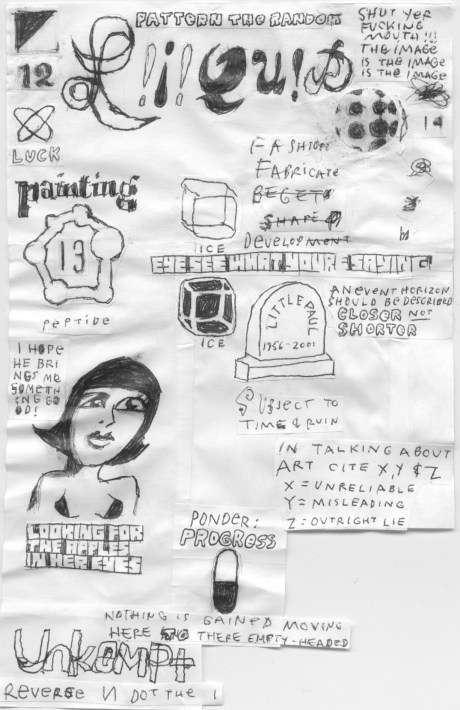 PATTERN THE RANDOM
SHUT YER
FUCKING
MOUTH!!!
THE IMAGE
IS THE IMAGE
IS THE IMAGE
12
L!i!QU!D
14
LUCK
FASHION
FABRICATE
BEGETS
SHAPE
DEVELOPMENT
painting
13
PEPTIDE
ICE
EYE SEE WHAT YOUR E SAYING
ICE
LITTLE PAUL
1956-2001
AN EVENT HORIZON
SHOULD BE DESCRIBED
CLOSER NOT
SHORTER
I HOPE
HE BRI
NGS ME
SOMETH
ING GO
OD!
SUBJECT TO
TIME & RUIN
IN TALKING ABOUT
ART CITE X,Y & Z
X = UNRELIABLE
Y = MISLEADING
Z = OUTRIGHT LIE
LOOKING FOR
THE APPLES
IN HER EYES
PONDER:
PROGRESS
NOTHING IS GAINED MOVING
HERE TO THERE EMPTY-HEADED
UNKEMPT
REVERSE N DOT THE I